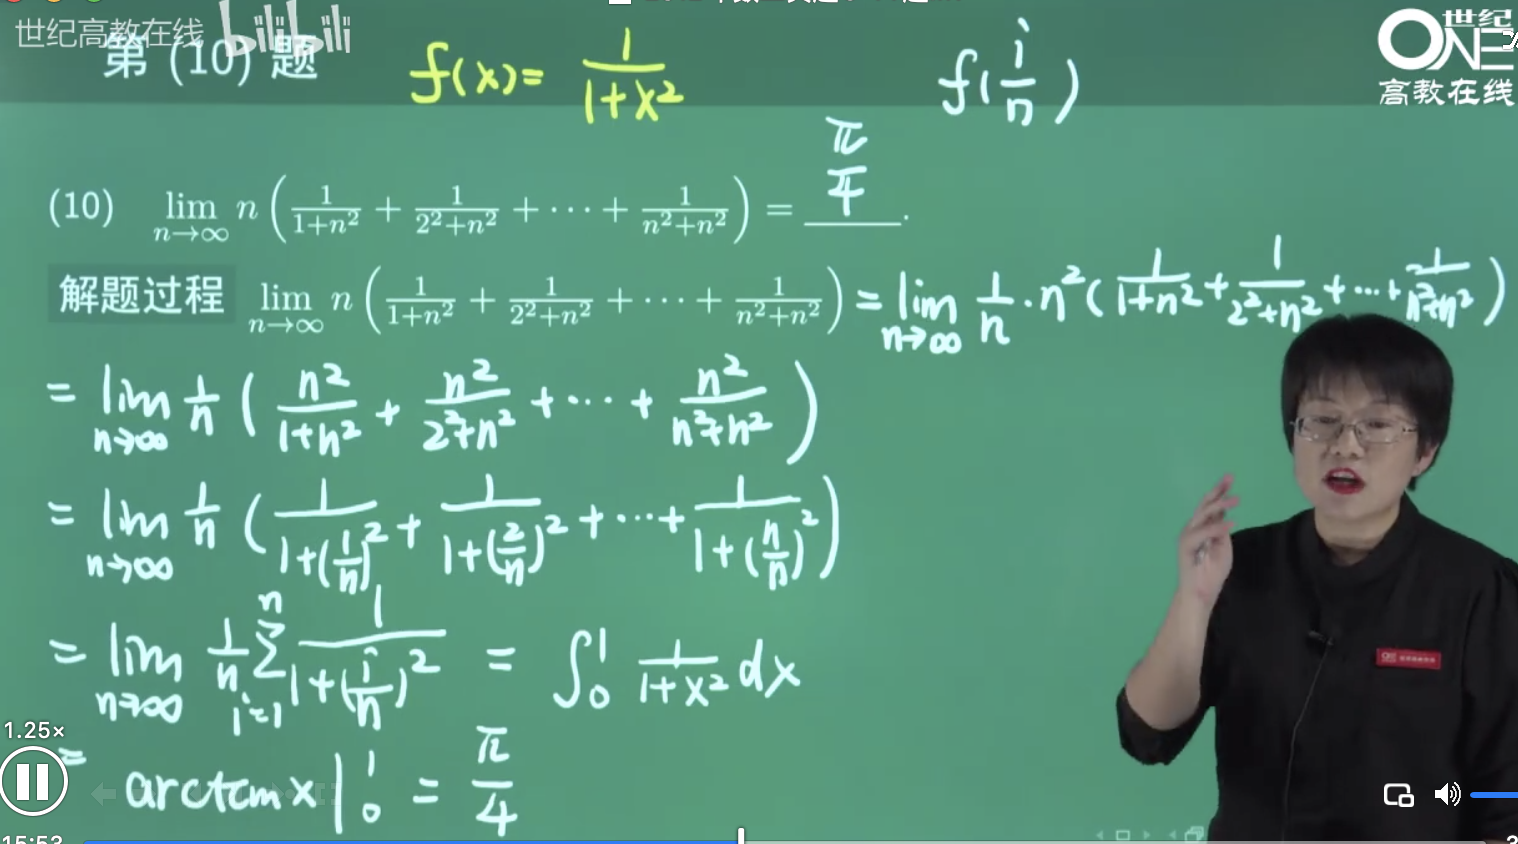 世纪高教在线 bilibili
世纪
ONE
高教在线
第 (10) 题
f(x)= 1/(1+x²)
f(i/n)
(10) lim n→∞ n ( 1/(1+n²) + 1/(2²+n²) + ⋯ + 1/(n²+n²) ) = π/4 .
解题过程 lim n→∞ n ( 1/(1+n²) + 1/(2²+n²) + ⋯ + 1/(n²+n²) ) = lim n→∞ 1/n · n² ( 1/(1+n²) + 1/(2²+n²) + ⋯ + 1/(n²+n²) )
= lim n→∞ 1/n ( n²/(1+n²) + n²/(2²+n²) + ⋯ + n²/(n²+n²) )
= lim n→∞ 1/n ( 1/(1+(1/n)²) + 1/(1+(2/n)²) + ⋯ + 1/(1+(n/n)²) )
= lim n→∞ 1/n ∑ i=1 n 1/(1+(i/n)²) = ∫₀¹ 1/(1+x²) dx
1.25×
= arctan x |₀¹ = π/4
15:53